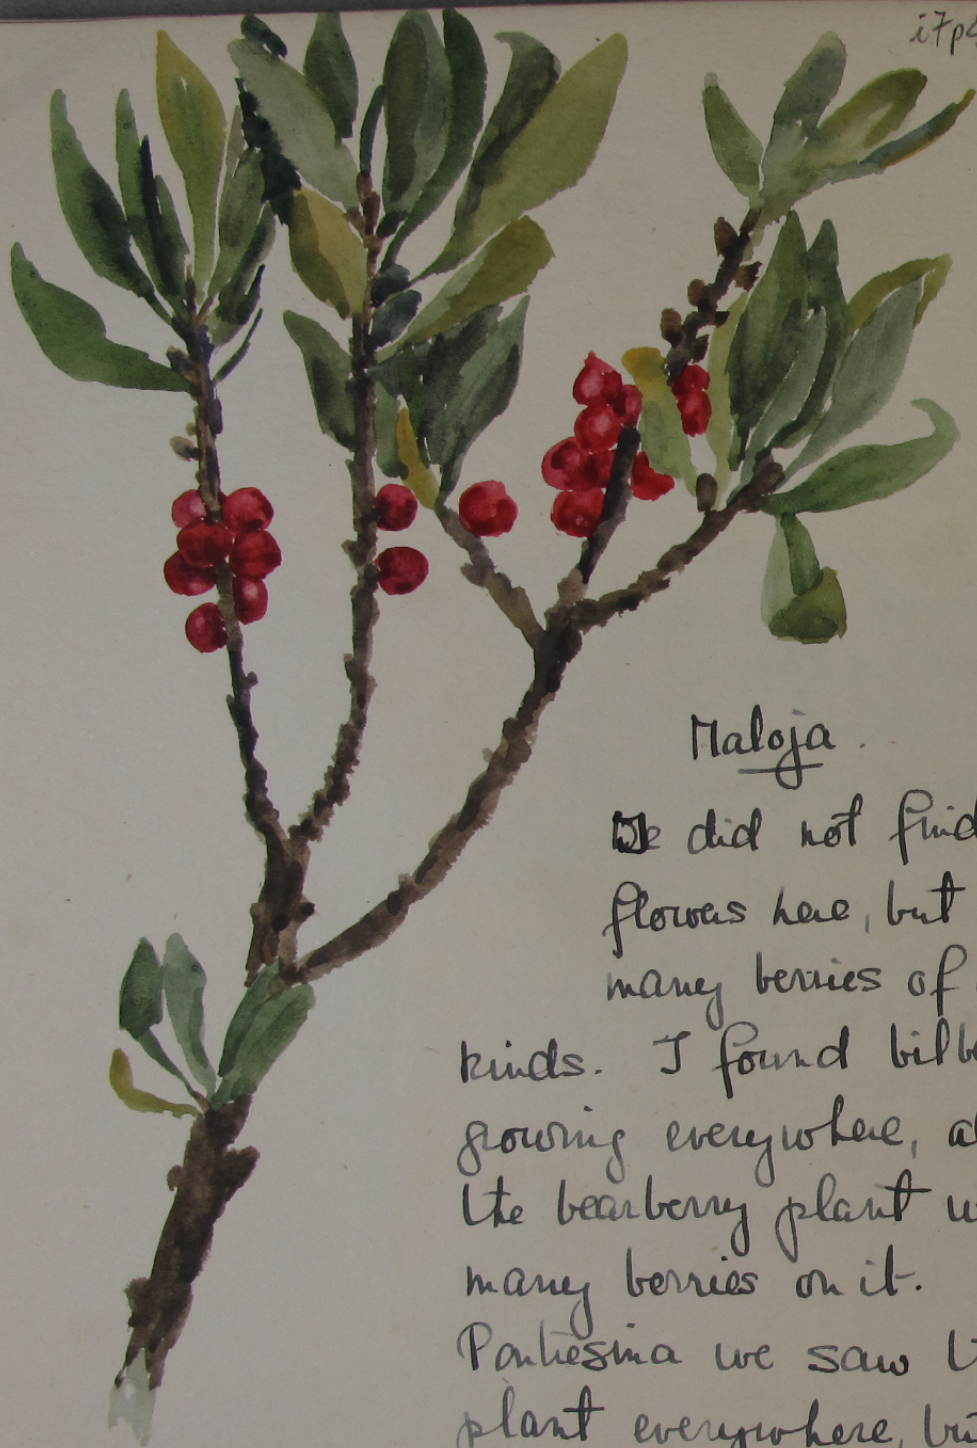 i7p
Maloja.
We did not find
flowers here, but
many berries of
kinds. I found bilb
growing everywhere, a
the bearberry plant w
many berries on it.
Pontresina we saw t
plant everywhere, bu